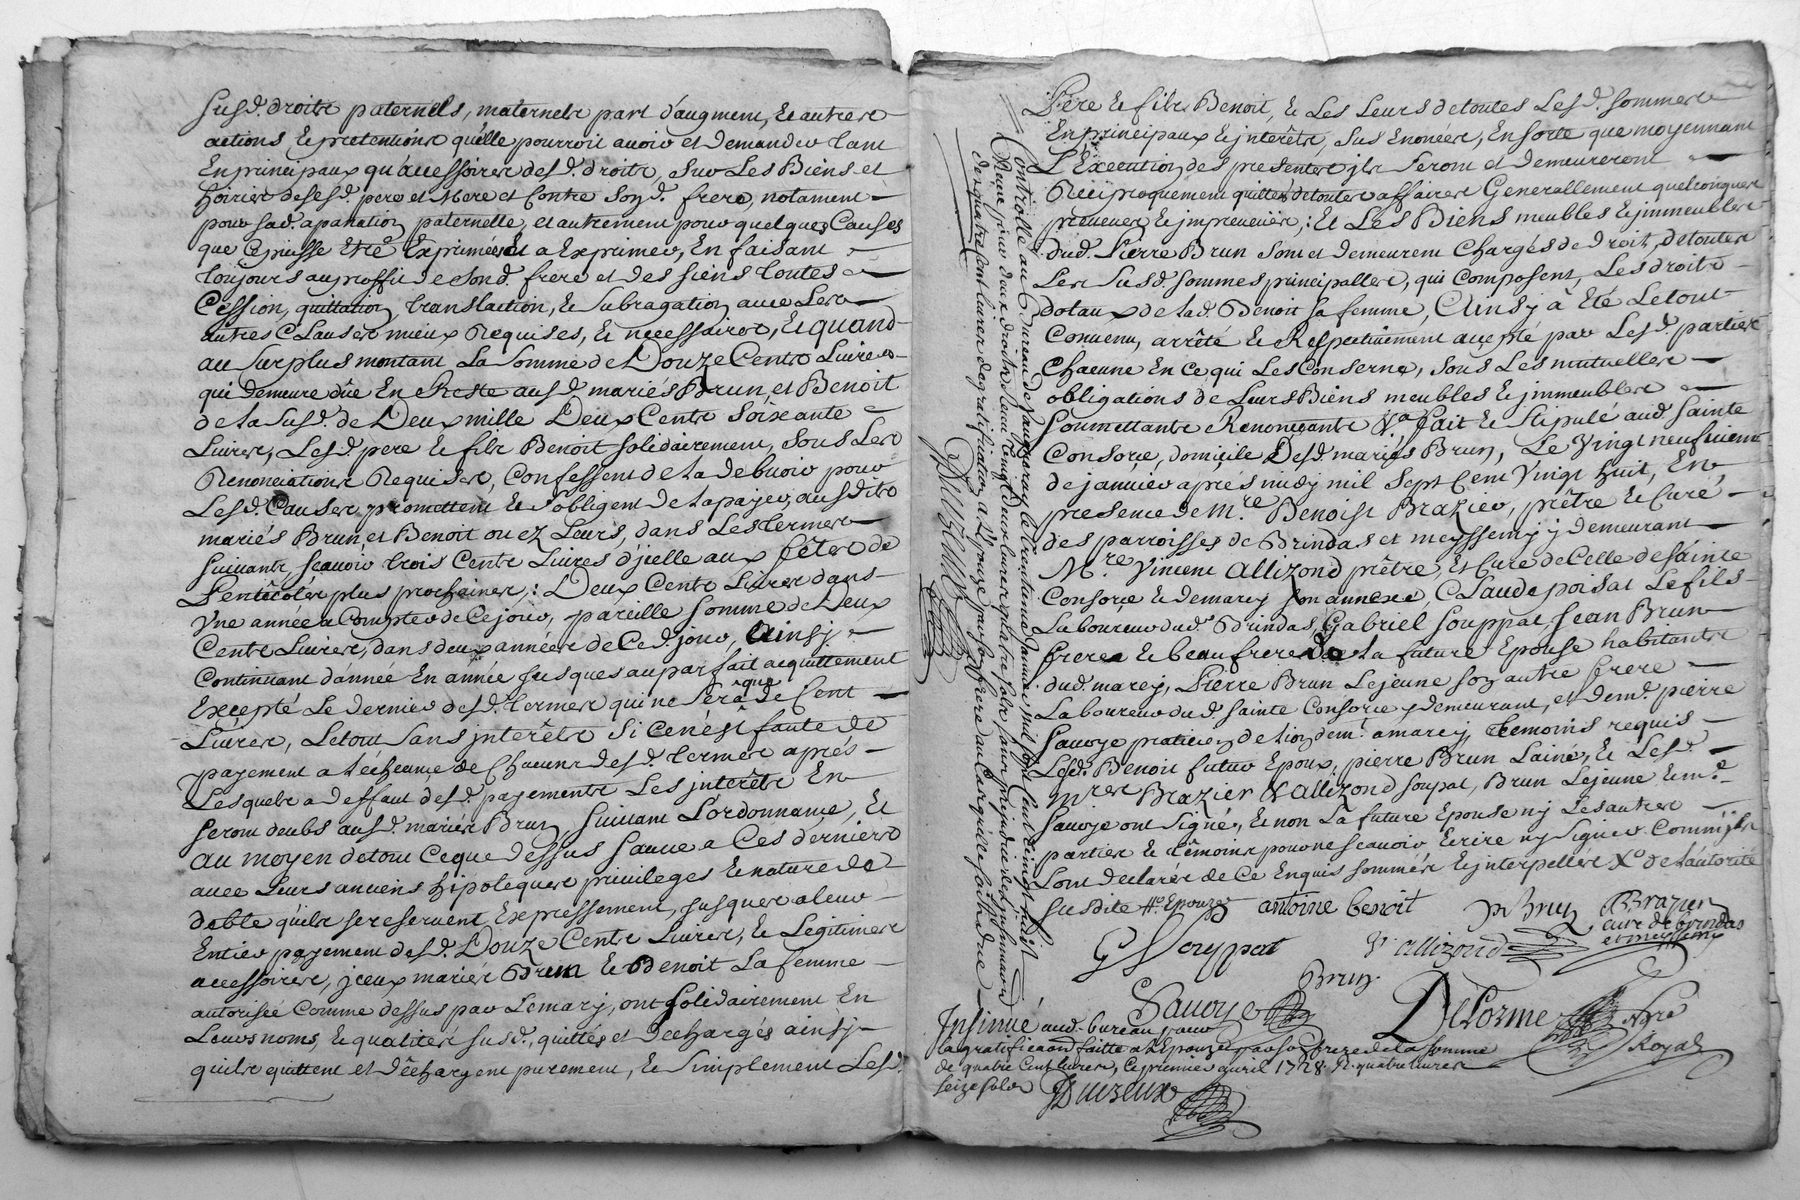 susd. droits paternels, maternels part d'augment, et autres
actions et pretentions qu'elle pourroit avoir et demander tant
En principaux qu'accessoires desd. droits, sur Les Biens et
hoiries de sesd. pere et Mere et Contre Sond. frere, notament
pour sad. apanation paternelle, et autrement pour quelques Causes
que Ce puisse Etre Exprimées et a Exprimer, En faisant
toujours au proffit de sond. frere et des siens toutes
Cession, quittation, translaction, et Subrogation avec Les
autres Clauses mieux Requises, et necessaires, Et quand
au surplus montant La Somme de Douze Cents Livres
qui demeure dûe En Reste ausd. mariés Brun et Benoit
de La susd. de Deux mille Deux Cents Soixante
Livres, Lesd. pere et fils Benoit solidairement, sous Les
Renonciations Requises, Confessent de La debvoir pour
Lesd. Causes promettent et s'obligent de La payer, ausdits
mariés Brun et Benoit ou ez Leurs, dans Les termes
suivants scavoir trois Cents Livres d'jcelle aux fêtes de
Pentecôtes plus prochaines,: Deux Cents Livres dans
Vne année a Compter de Ce jour, pareille somme de Deux
Cents Livres, dans deux années de Ce d. jour, Ainsj
Continuant d'année En année jusques au parfait acquittement
Excepté Le dernier desd. termes qui ne sera que de Cent
Livres, Le tout sans jnterêts Si Ce n'est faute de
payement a L'echeance de Chacuns desd. termes après
Lesquels a deffaut desd. payements Les jnterêts En
seront deubs ausd. mariés Brun, suivant L'ordonnance, Et
au moyen de tout Ceque Dessus sauve a Ces derniers
avec Leurs anciens hipoteques privileges et nature de
debte qu'ils se reservent Expressement, jusques a leur
Entier payement desd. Douze Cents Livres, et Legitimes
accessoires, jceux mariés Brun et Benoit La femme
autorisée Comme dessus par Le mary, ont solidairement En
Leurs noms, et qualités susd., quittés et Dechargés ainsj
quils quittent et Déchargent purement, et Simplement Lesd.
Pere et fils Benoit, et Les Leurs de toutes Lesd. sommes
En principaux et jnterêts, sus Enoncées, En sorte que moyennant
L'Execution des presentes jls seront et demeureront
Reciproquement quittes de toutes affaires Generallement quelconques
prevenues et jmprevenües,: Et Les Biens meubles et jmmeubles
dud. Pierre Brun sont et demeurent Chargés de droit, de toutes
Les susd. sommes principalles, qui Composent, Les droits
dotaux de lad. Benoit sa femme, Ainsy à été Le tout
Convenu, arrêté et Respectivement accepté par Lesd. parties
Chacune En ce qui Les Conserne, sous Les mutuelles
obligations de Leurs Biens meubles et jmmeubles
soumettants Renonçants Va fait et stipulé aud. Sainte
Consorce, domicile Desd. mariés Brun, Le Vingt neufvieme
de janvier après midy mil Sept Cent Vingt huit, En
presence de M.re Benoist Brazier, prêtre et Curé
des parroisses de Brindas et meyssemy y demeurant
M.re Vincent Allizond prêtre, et Cure de Celle de Sainte
Consorce et de marcy son annexe, Claude poisat Le fils
Laboureur dud. Brindas, Gabriél Souppat, Jean Brun
freres et beaufreres de La future Epouse habitants
dud. marcy, Pierre Brun Lejeune son autre frere
Laboureur dud. Sainte Consorce y demeurant, et dem.t pierre
Sauoye praticien de Lion dem.t a marcy temoins requis
Lesd. Benoit futur Epoux, pierre Brun L'ainé, et Lesd.
M.res Brazier & Allizond soupat, Brun Lejeune et m.e
Sauoye ont signé, et non La future Epouse ny Les autres
parties et têmoins pour ne scavoir Ecrire ny signer Comm'jls
sont declarés de Ce Enquis sommés et jnterpellés X.o de L'autorité
susdite #.o Epouze
antoine benoit
P Brun
BBrazier
cure de brindas
et meyssemy
G Souppat
V. allizond
Brun
Sauoye
DeLorme
No.re
Royal
Controllé au Bureau de Vaugneray Le trentieme Janvier mil Sept Cent vingt huit
de quatre cent Livres de gratification a L'Epouze par son frere
Duizeux
Insinué aud. bureau pour
la gratification faitte a L'Epouze par son frere de la somme
de quatre Cent Livres, Ce premier avril 1728. R. quatre Livres
seize sols
Duizeux